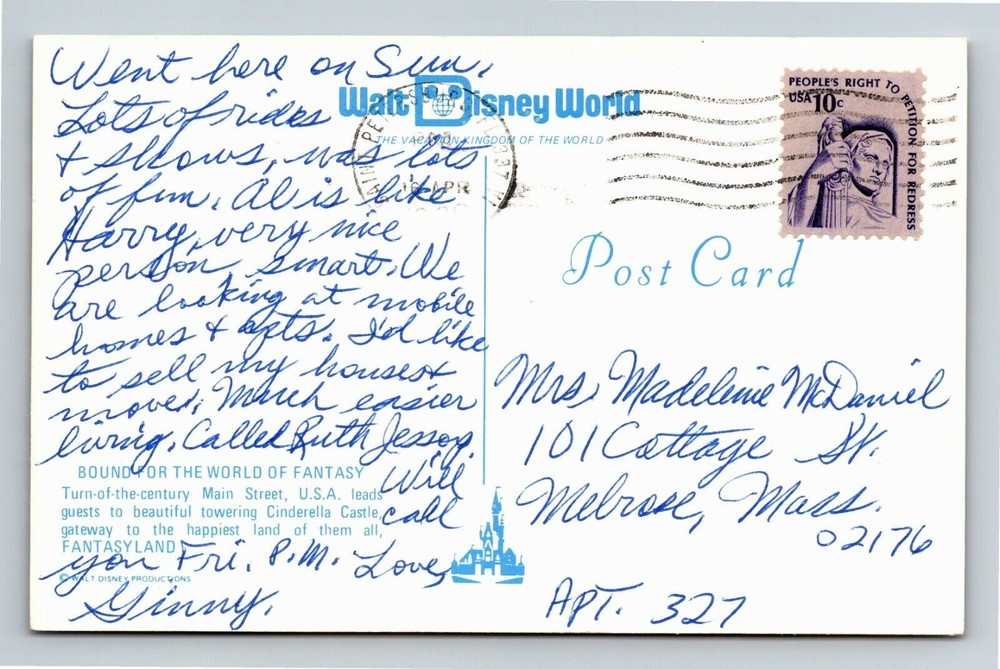 Went here on Sun.
Lots of rides
& shows, was lots
of fun. Al is like
Harry, very nice
person, smart. We
are looking at mobile
homes & apts. I'd like
to sell my house &
move. Much easier
living. Called Ruth Jessop.
Will
call
you Fri. P.M. Love,
Ginny.
BOUND FOR THE WORLD OF FANTASY
Turn-of-the-century Main Street, U.S.A. leads
guests to beautiful towering Cinderella Castle,
gateway to the happiest land of them all,
FANTASYLAND
© WALT DISNEY PRODUCTIONS
Walt Disney World
THE VACATION KINGDOM OF THE WORLD
16 APR
PEOPLE'S RIGHT TO PETITION FOR REDRESS
USA 10c
Post Card
Mrs. Madeline McDaniel
101 Cottage St.
Melrose, Mass.
02176
APT. 327